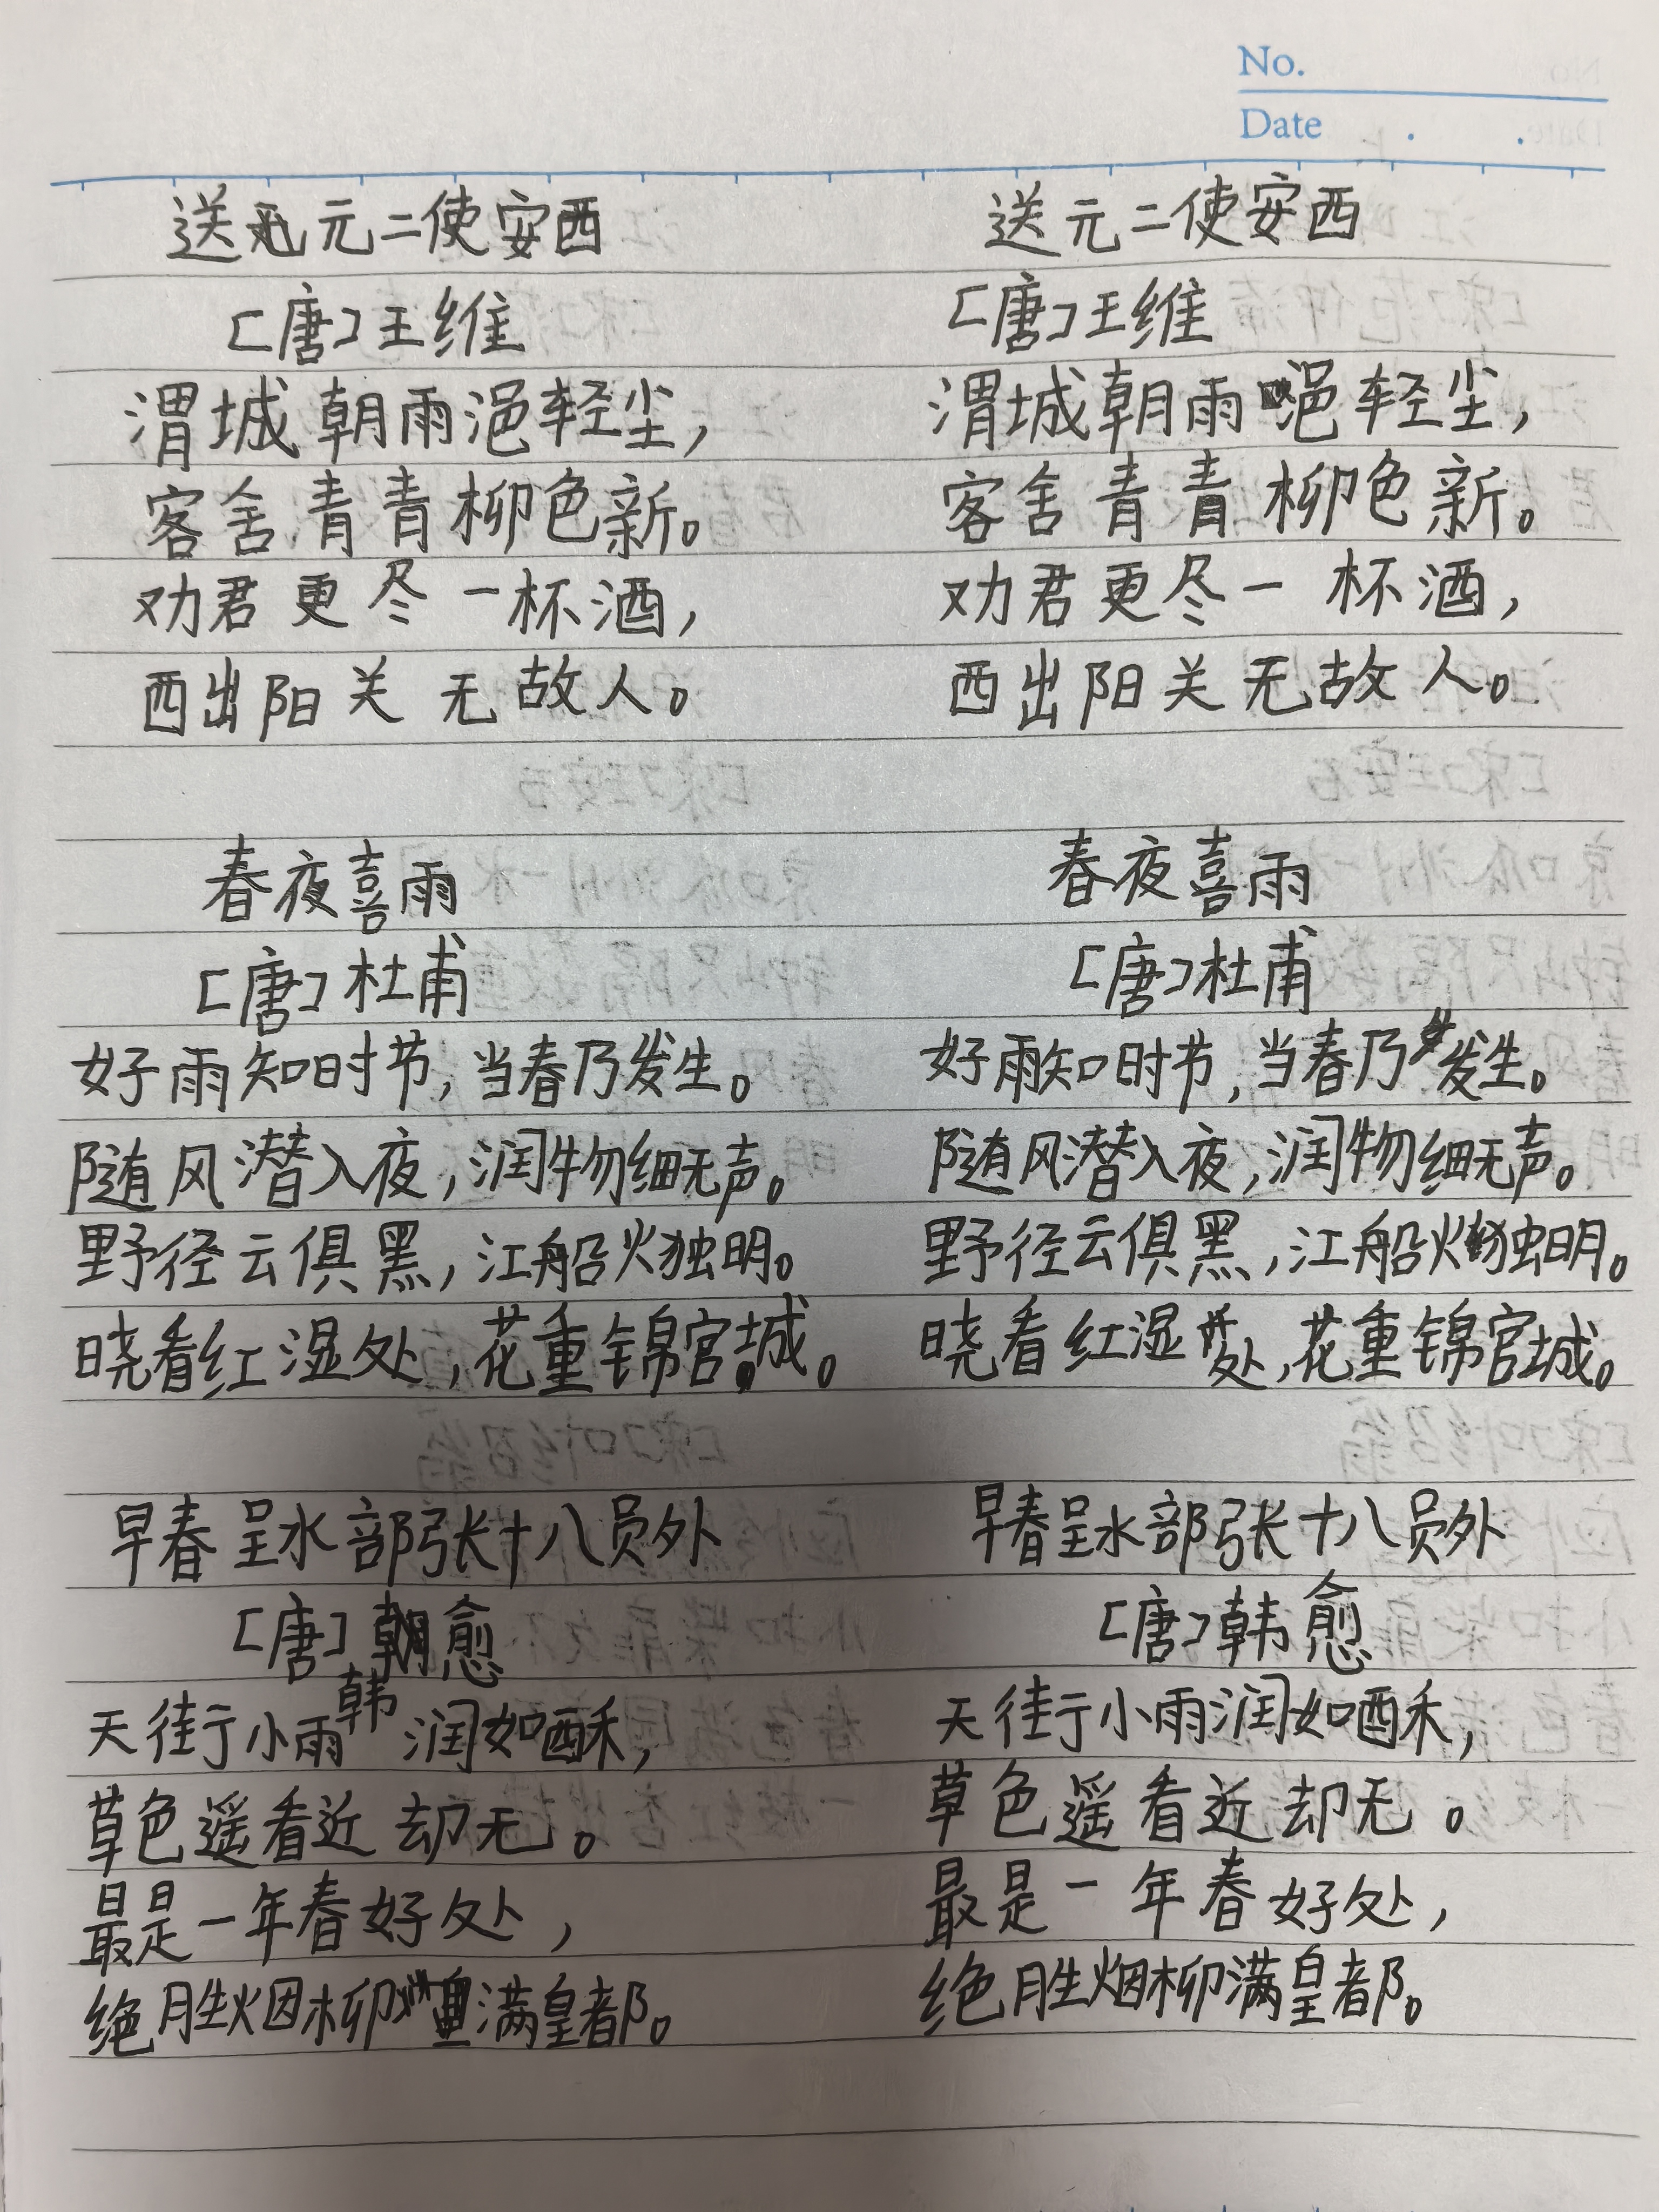 No.
Date
送元二使安西
[唐]王维
渭城朝雨浥轻尘，
客舍青青柳色新。
劝君更尽一杯酒，
西出阳关无故人。
春夜喜雨
[唐]杜甫
好雨知时节，当春乃发生。
随风潜入夜，润物细无声。
野径云俱黑，江船火独明。
晓看红湿处，花重锦官城。
早春呈水部张十八员外
[唐]韩愈
天街小雨润如酥，
草色遥看近却无。
最是一年春好处，
绝胜烟柳满皇都。
送元二使安西
[唐]王维
渭城朝雨浥轻尘，
客舍青青柳色新。
劝君更尽一杯酒，
西出阳关无故人。
春夜喜雨
[唐]杜甫
好雨知时节，当春乃发生。
随风潜入夜，润物细无声。
野径云俱黑，江船火独明。
晓看红湿处，花重锦官城。
早春呈水部张十八员外
[唐]韩愈
天街小雨润如酥，
草色遥看近却无。
最是一年春好处，
绝胜烟柳满皇都。